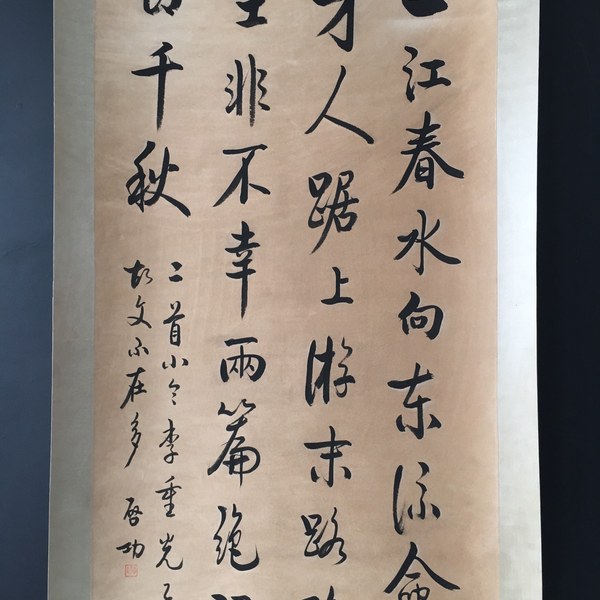 一江春水向东流命
才人踞上游末路降
王非不幸兩篇絕调
千秋
二首小令李重光
故文不在多 启功